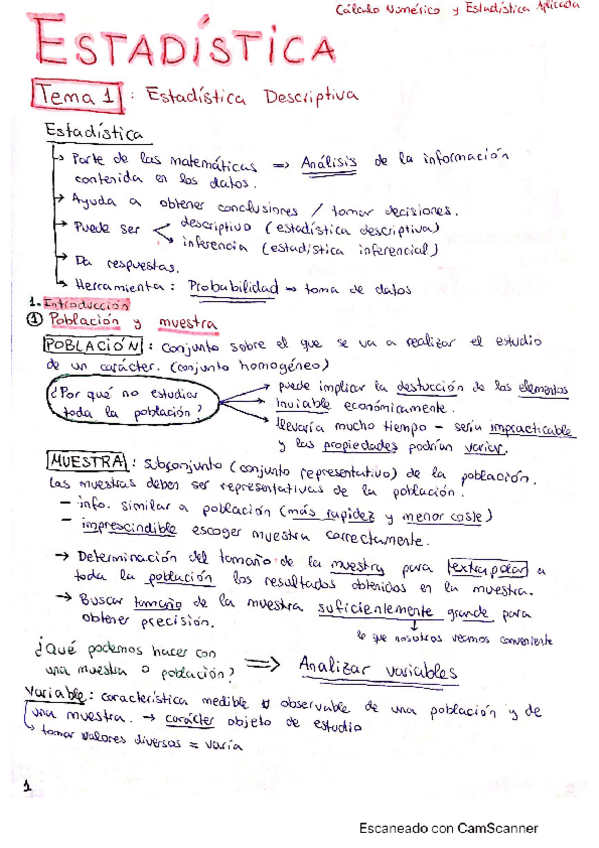 Cálculo Numérico y Estadística Aplicada
ESTADÍSTICA
Tema 1 : Estadística Descriptiva
Estadística
→ Parte de las matemáticas ⇒ Análisis de la información
contenida en los datos.
→ Ayuda a obtener conclusiones / tomar decisiones.
→ Puede ser descriptivo (estadística descriptiva)
inferencia (estadística inferencial)
→ Da respuestas.
→ Herramienta: Probabilidad → toma de datos
1. Introducción
① Población y muestra
POBLACIÓN : conjunto sobre el que se va a realizar el estudio
de un carácter. (conjunto homogéneo)
¿Por qué no estudiar
toda la población?
→ puede implicar la destucción de los elementos
→ Inviable económicamente.
→ llevaría mucho tiempo - sería impracticable
y las propiedades podrían variar.
MUESTRA : subconjunto (conjunto representativo) de la población.
Las muestras deben ser representativas de la población.
- info. similar a población (más rapidez y menor coste)
- imprescindible escoger muestra correctamente.
→ Determinación del tamaño de la muestra para extrapolar a
toda la población los resultados obtenidos en la muestra.
→ Buscar tamaño de la muestra suficientemente grande para
obtener precisión.
lo que nosotros veamos conveniente
¿Qué podemos hacer con
una muestra o población? ⇒ Analizar variables
Variable: característica medible u observable de una población y de
una muestra. → carácter objeto de estudio
→ tomar valores diversos = varía
1
Escaneado con CamScanner